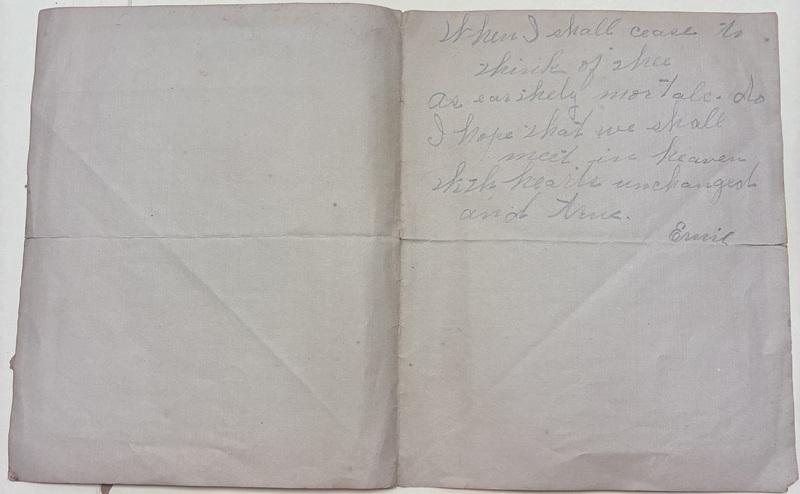 When I shall cease to
think of thee
As earthely mortals do
I hope that we shall
meet in heaven
With hearts unchanged
and true.
Ernie